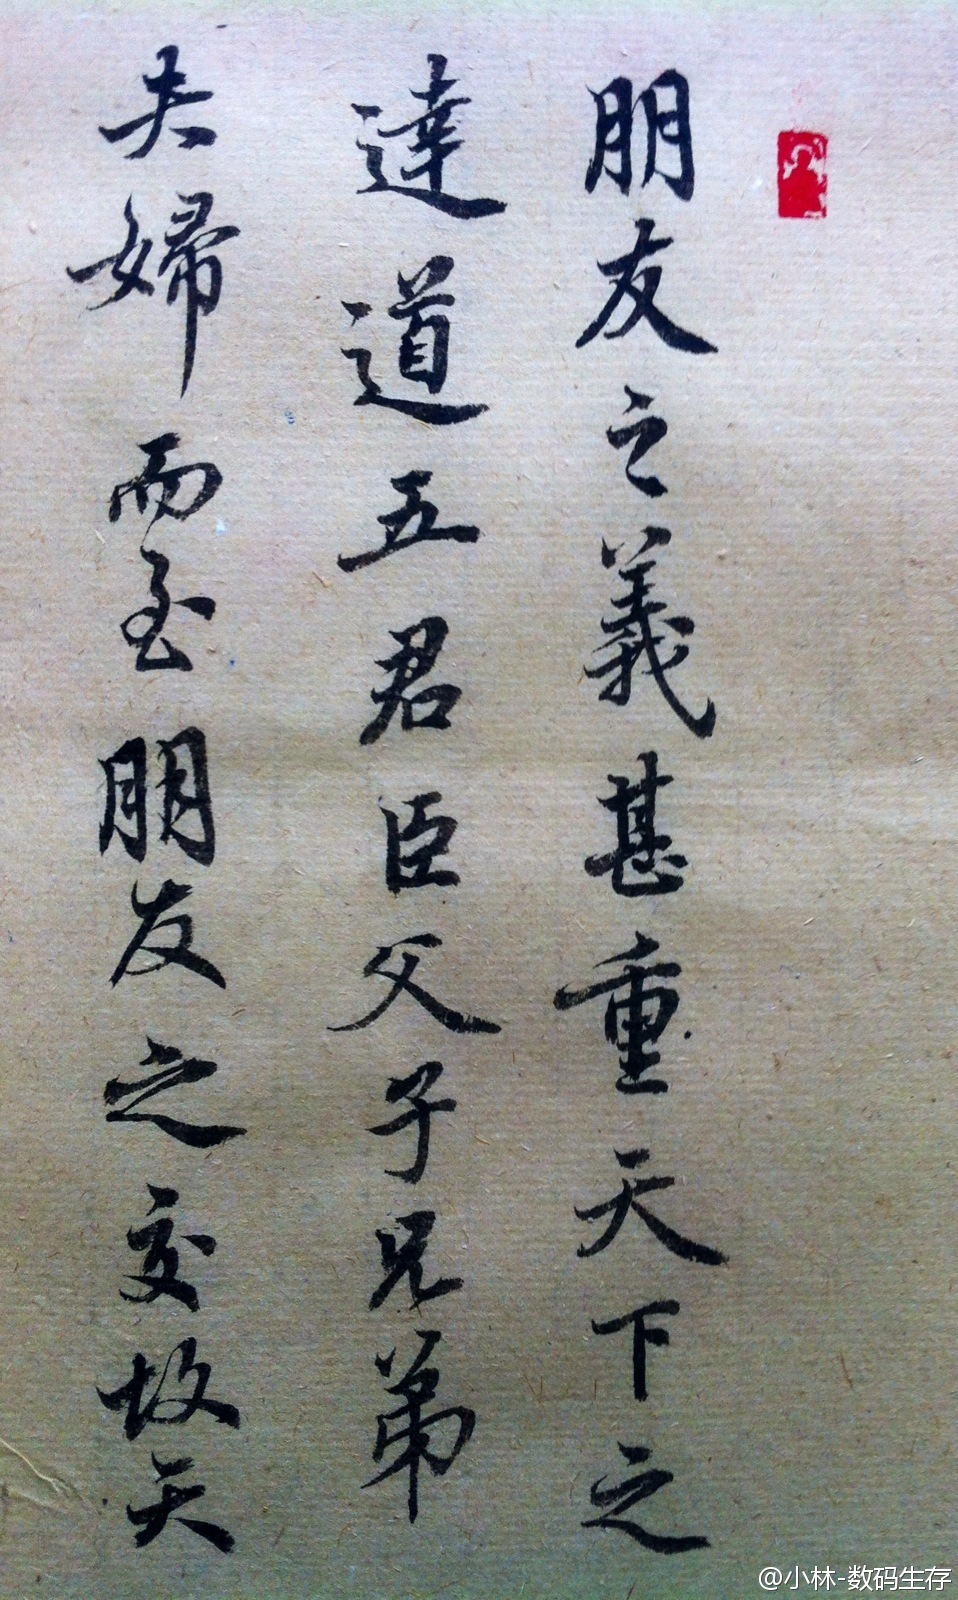 朋友之義甚重天下之
達道五君臣父子兄弟
夫婦而至朋友之交故天
@小林-数码生存